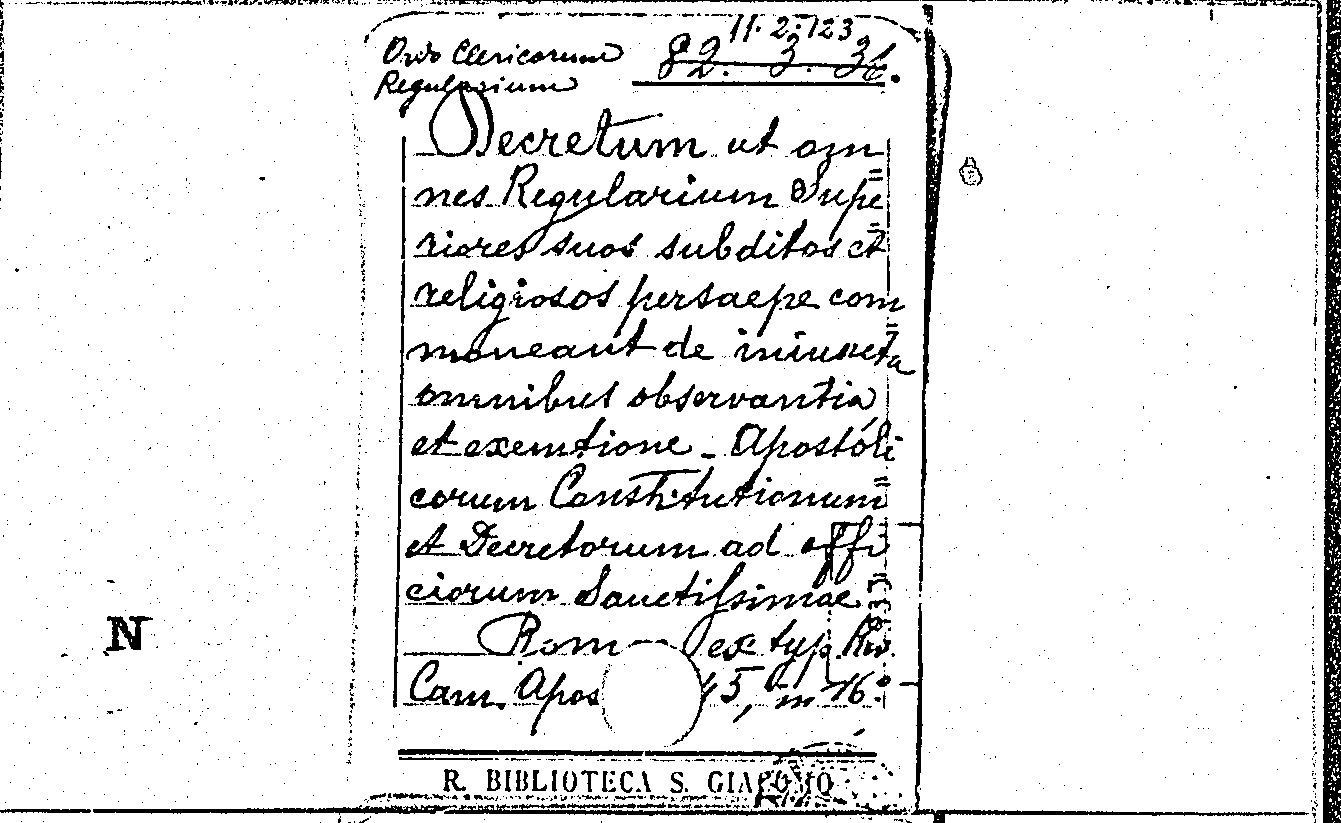 11.2.123
Ordo Clericorum 82. 3. 36.
Regularium
Decretum ut om=
nes Regularium Supe=
riores suos subditos et
religiosos persaepe com=
moneant de iniuncta
omnibus observantia
et exemtione - Apostoli=
corum Constitutionum
et Decretorum ad offi=
ciorum Sanctissimae
Rom ex typ. Rev.
Cam. Apos 45, in 16.°
N
R. BIBLIOTECA S. GIACOMO